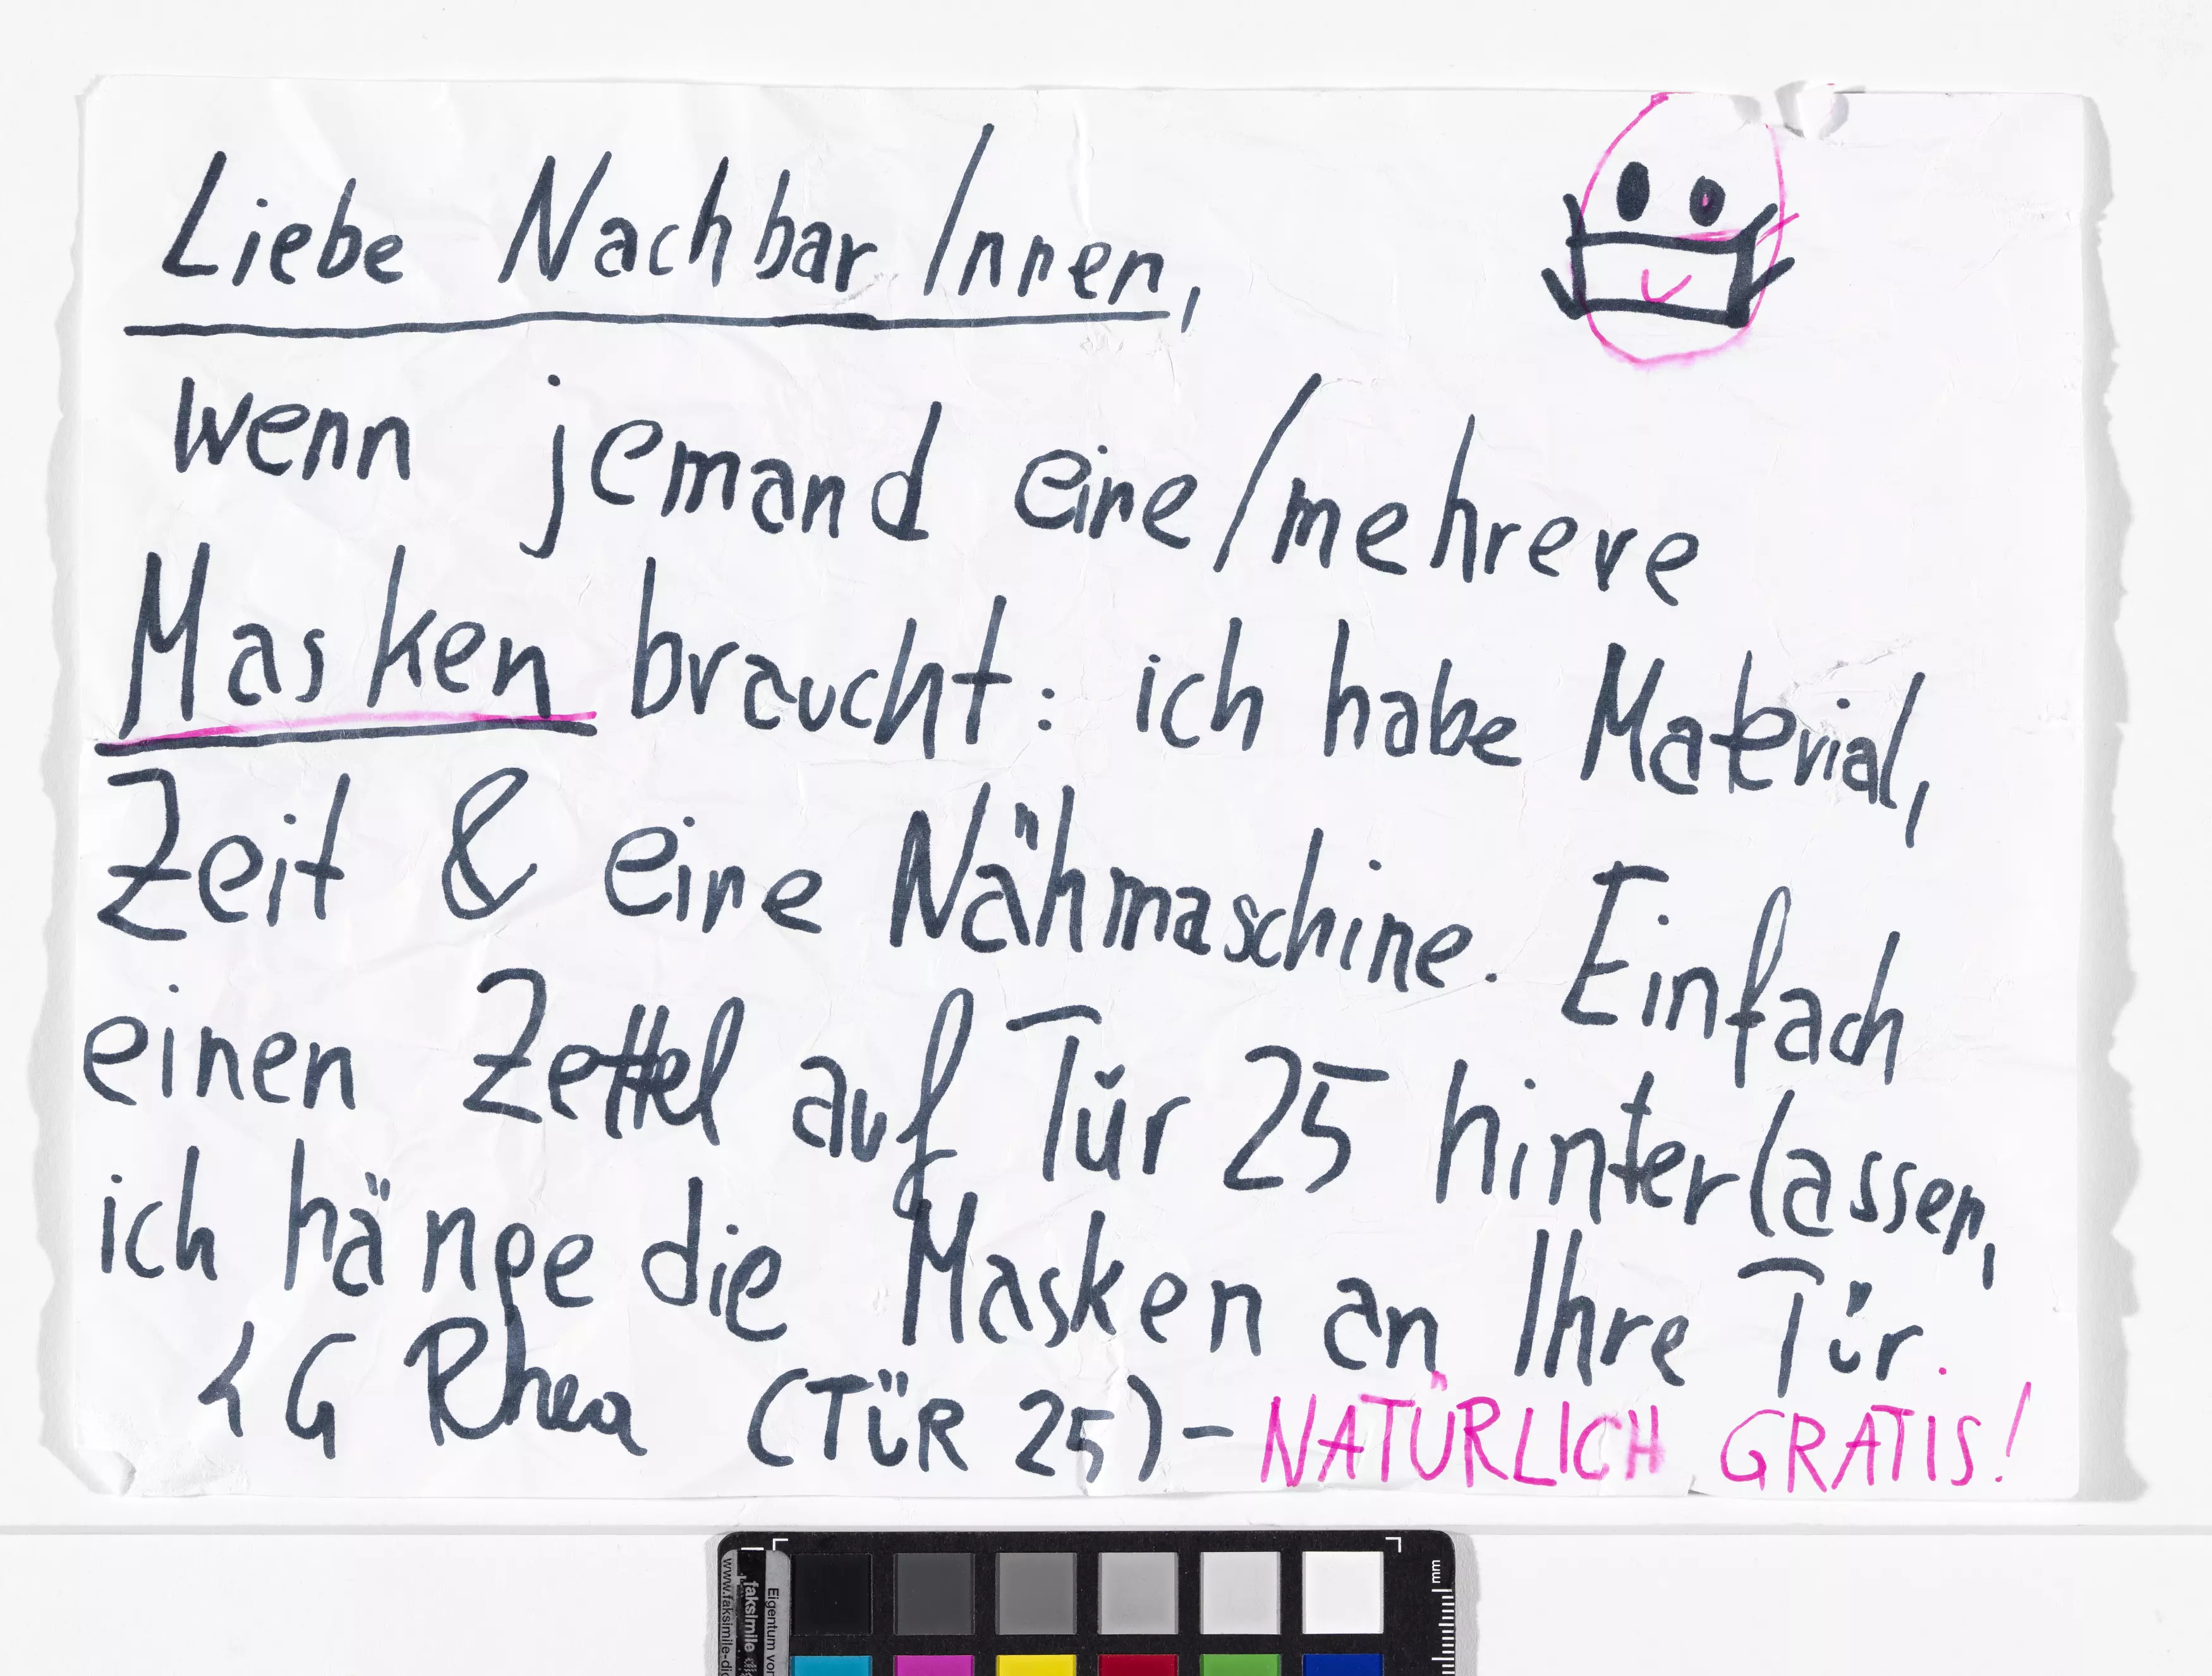 Liebe NachbarInnen,
wenn jemand eine/mehrere
Masken braucht: ich habe Material,
Zeit & eine Nähmaschine. Einfach
einen Zettel auf Tür 25 hinterlassen,
ich hänge die Masken an Ihre Tür.
LG Rhea (TÜR 25) – NATÜRLICH GRATIS!
mm
Eigentum von
faksimile
www.faksimile-di